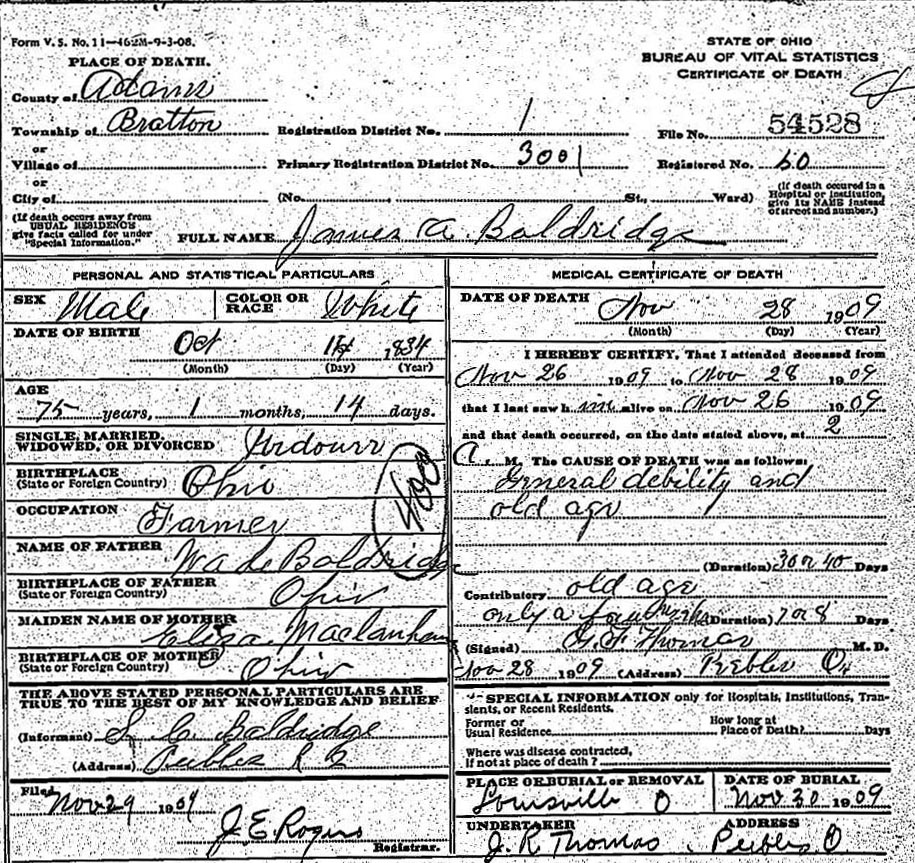 Form V. S. No. 11—462M-9-3-08.
STATE OF OHIO
BUREAU OF VITAL STATISTICS
CERTIFICATE OF DEATH
PLACE OF DEATH.
County of Adams
Township of Bratton
or
Village of
or
City of
Registration District No. 1
File No. 54528
Primary Registration District No. 3001
Registered No. 60
(No. St., Ward)
(If death occured in a
Hospital or institution,
give its NAME instead
of street and number.)
(If death occurs away from
USUAL RESIDENCE
give facts called for under
"Special Information.")
FULL NAME James A Baldridge
PERSONAL AND STATISTICAL PARTICULARS
SEX Male
COLOR OR RACE White
DATE OF BIRTH
Oct 14 1834
(Month) (Day) (Year)
AGE
75 years, 1 months, 14 days.
SINGLE, MARRIED,
WIDOWED, OR DIVORCED
BIRTHPLACE
(State or Foreign Country) Ohio
OCCUPATION Farmer
NAME OF FATHER Baldridge
BIRTHPLACE OF FATHER
(State or Foreign Country) Ohio
MAIDEN NAME OF MOTHER
Eliza
BIRTHPLACE OF MOTHER
(State or Foreign Country) Ohio
400
THE ABOVE STATED PERSONAL PARTICULARS ARE
TRUE TO THE BEST OF MY KNOWLEDGE AND BELIEF
(Informant) S C Baldridge
(Address) Peebles R 2
Filed Nov 29 1909
J. E. Rogers
Registrar.
MEDICAL CERTIFICATE OF DEATH
DATE OF DEATH Nov 28 1909
(Month) (Day) (Year)
I HEREBY CERTIFY, That I attended deceased from
Nov 26 1909 to Nov 28 1909
that I last saw h im alive on Nov 26 1909
and that death occurred, on the date stated above, at 2
A. M. The CAUSE OF DEATH was as follows:
General debility and
old age
(Duration) 30 or 40 Days
Contributory old age
only a (Duration) 7 or 8 Days
(Signed) Thomas M. D.
Nov 28 1909 (Address) Peebles O.
SPECIAL INFORMATION only for Hospitals, Institutions, Tran-
sients, or Recent Residents.
Former or
Usual Residence
How long at
Place of Death? Days
Where was disease contracted,
if not at place of death?
PLACE OF BURIAL or REMOVAL
Louisville O
DATE OF BURIAL
Nov 30 1909
UNDERTAKER
J. R Thomas
ADDRESS
Peebles O.